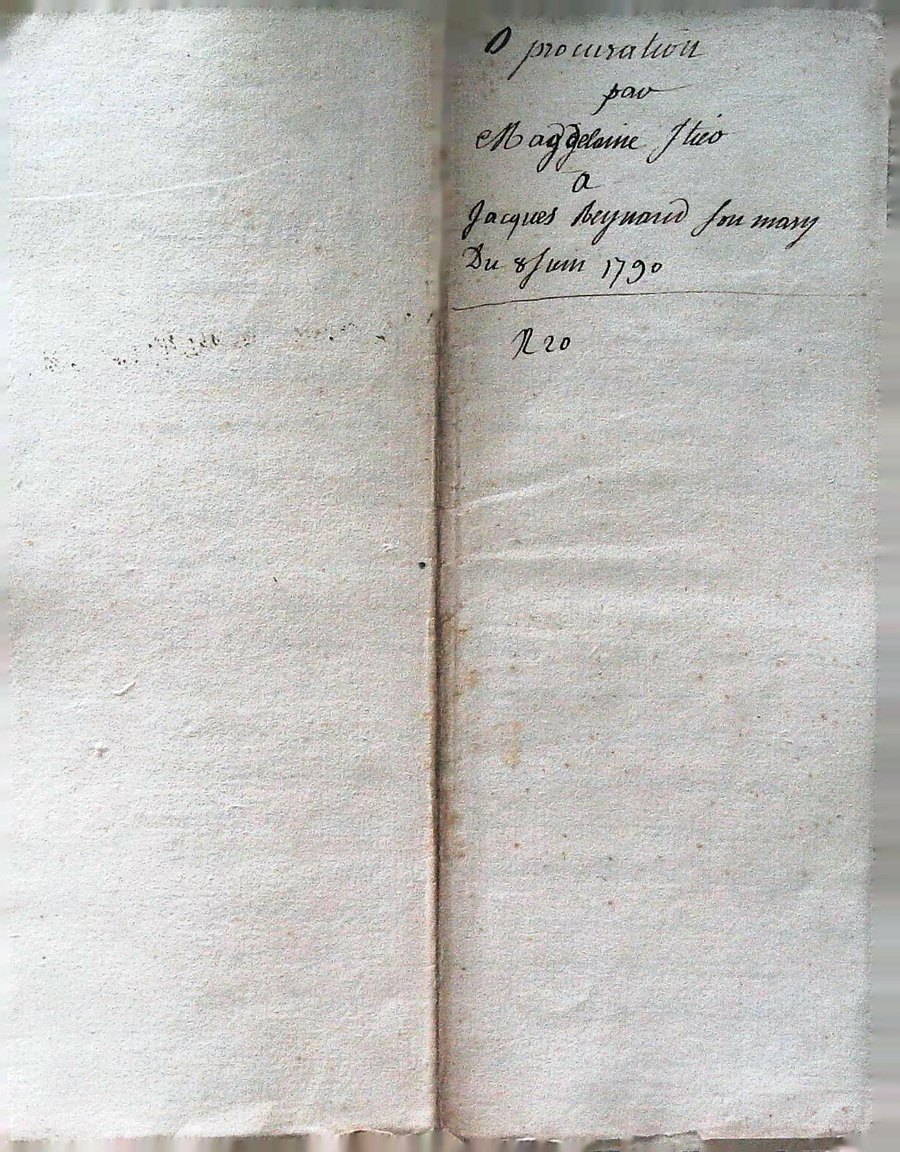 procuration
par
Magdelaine
a
Jacques Reynaud son mary
Du 8 Juin 1790
R 20